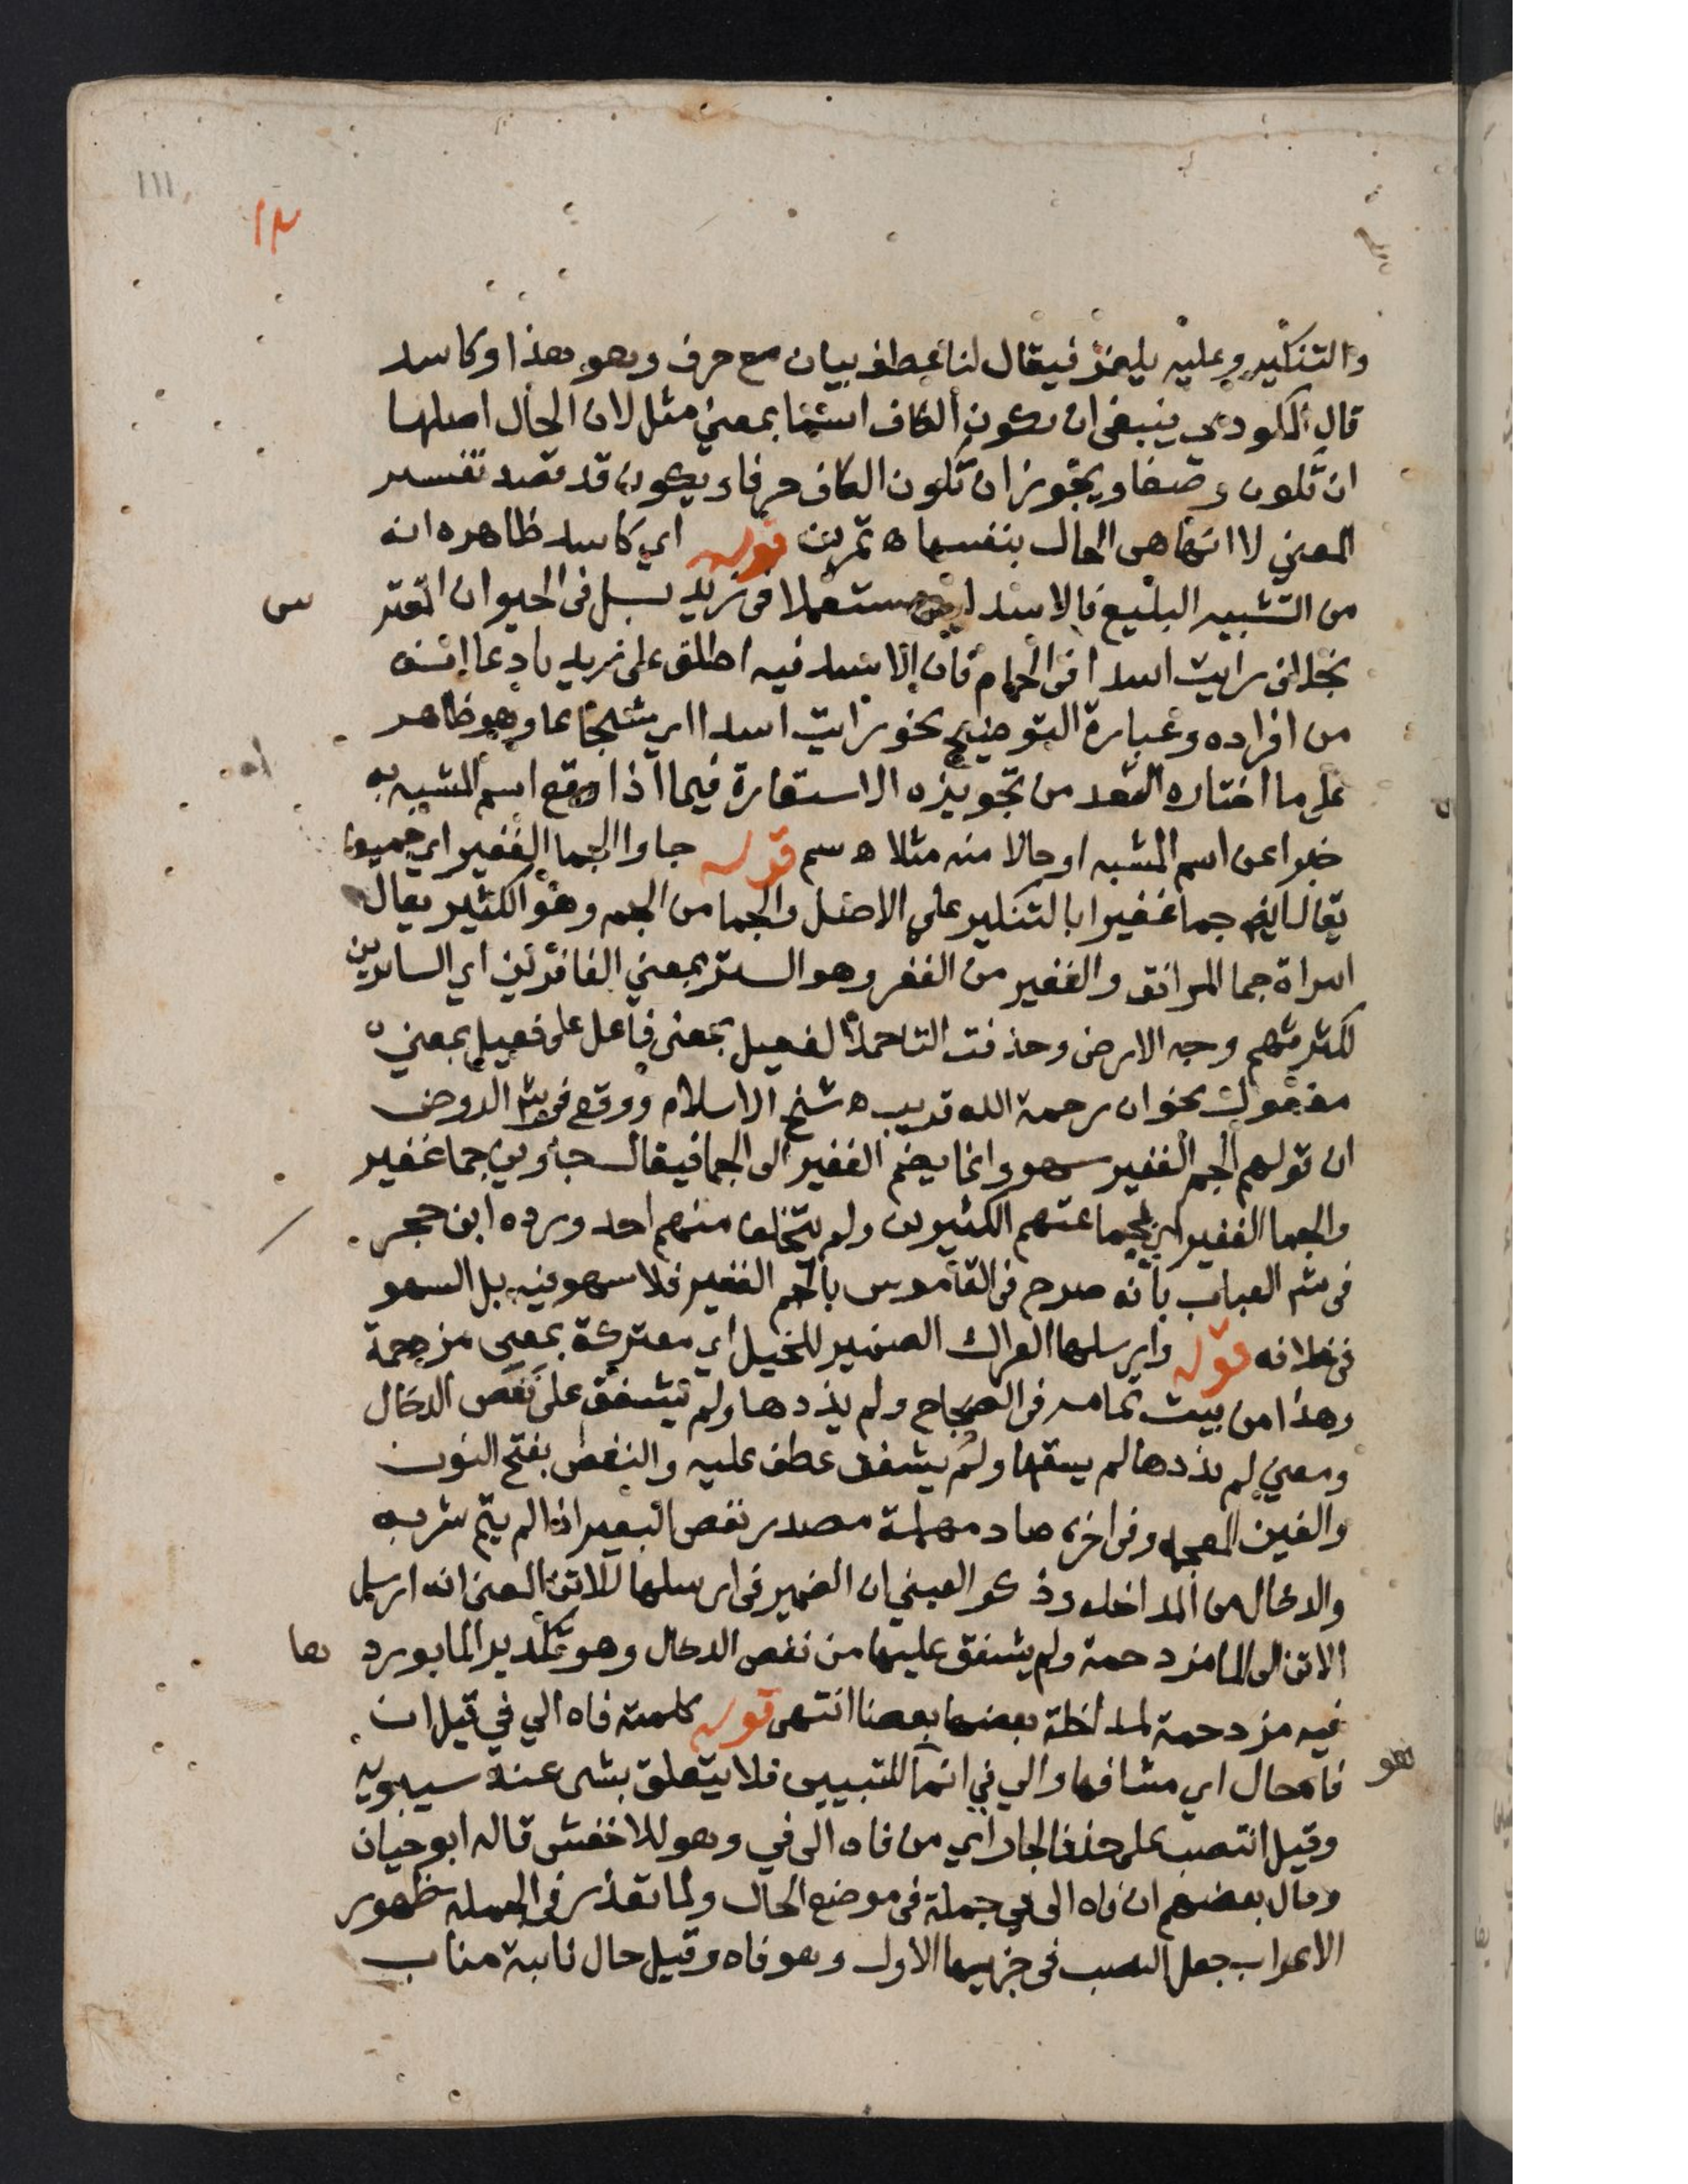 ١١١
١٢
والتنكير وعليه يلغز فيقال لنا عطف بيان مع حرف وهو هذا وكاسد
قال المكودي ينبغي ان يكون الكاف اسما بمعني مثل لان الحال اصلها
ان تكون وصفا ويجوز ان تكون الكاف حرفا ويكون قد قصد تفسير
المعني لا انها هي الحال بنفسها ه تمرين قوله اي كاسد ظاهره انه
من التشبيه البليغ فالاسد ليس مستعملا في زيد بل في الحيوان المفتر
س
بخلاف رايت اسدا في الحمام فان الاسد فيه اطلق على زيد بادعا انه
من افراده وعبارة التوضيح نحو رايت اسدا اي شجاعا وهو ظاهر
على ما اختاره السعد من تجويزه الاستعارة فيما اذا وقع اسم المشبه به
خبرا عن اسم المشبه او حالا منه مثلا ه سم قوله جاوا الجما الغفير اي جميعا
يقال ايضا جما غفيرا بالتنكير على الاصل والجما من الجم وهو الكثير يقال
امراة جما المرافق والغفير من الغفر وهو الستر بمعني الغافرين اي الساترين
لكثرتهم وجه الارض وحذفت التا حملا لفعيل بمعنى فاعل على فعيل بمعني
مفعول نحو ان رحمة الله قريب ه شيخ الاسلام ووقع في شرح الروض
ان قولهم الجم الغفير سهو وانما يضم الغفير الى الجما فيقال جاوني جما غفير
والجما الغفير اي بجماعتهم الكثيرون ولم يتخلف منهم احد ورده ابن حجر
في شم العباب بانه صرح في القاموس بالجم الغفير فلا سهو فيه بل السهو
في خلافه قوله وارسلها العراك الضمير للخيل اي معتركة بمعني مزدحمة
وهذا من بيت تمامه في الصحاح ولم يذدها ولم يشفق على نغص الدخال
ومعني لم يذدها لم يسقها ولم يشفق عطف عليه والنغص بفتح النون
والغين المعجمه وفي اخره صاد مهملة مصدر نغص البعير اذا لم يتم شربه
والدخال من المداخله وذكر العيني ان الضمير في ارسلها للاتن المعني انه ارسل
الاتن الى الما مزدحمة ولم يشفق عليها من نغص الدخال وهو تكدير الما بورد
ها
فيه مزدحمة لمداخلة بعضها بعضا انتهى قوله كلمته فاه الي في قيل ان
فاه حال اي مشافها والي في انما للتبيين فلا يتعلق بشى عند سيبويه
وقيل انتصب على حذف الجار اي من فاه الى في وهو للاخفش قاله ابو حيان
وقال بعضهم ان فاه الى في جملة في موضع الحال ولما تعذر في الجملة ظهور
الاعراب جعل النصب في جزيها الاول وهو فاه وقيل حال نايبة مناب